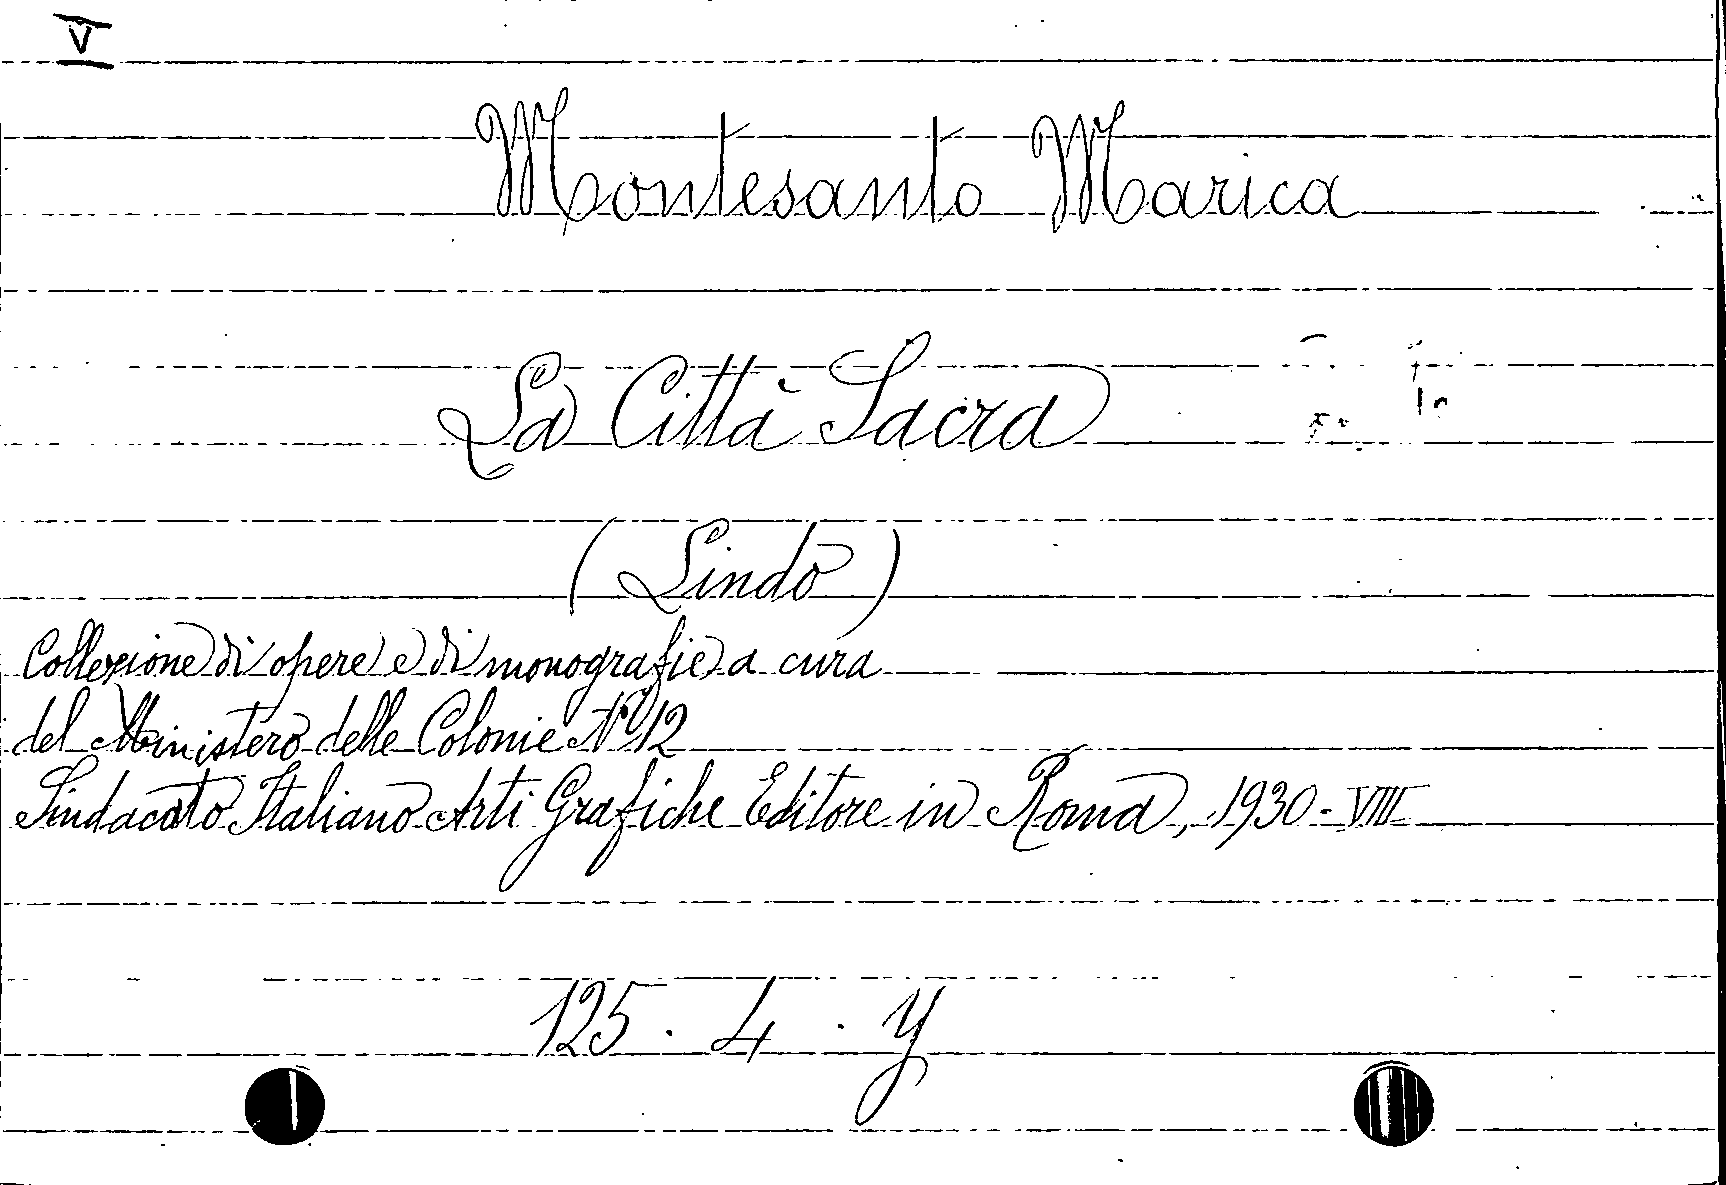 V
Montesanto Marica
La Città Sacra
(Lindo)
Collezione di opere e di monografie a cura
del Ministero delle Colonie N° 12
Sindacato Italiano Arti Grafiche Editore in Roma, 1930-VIII
125. 4. y